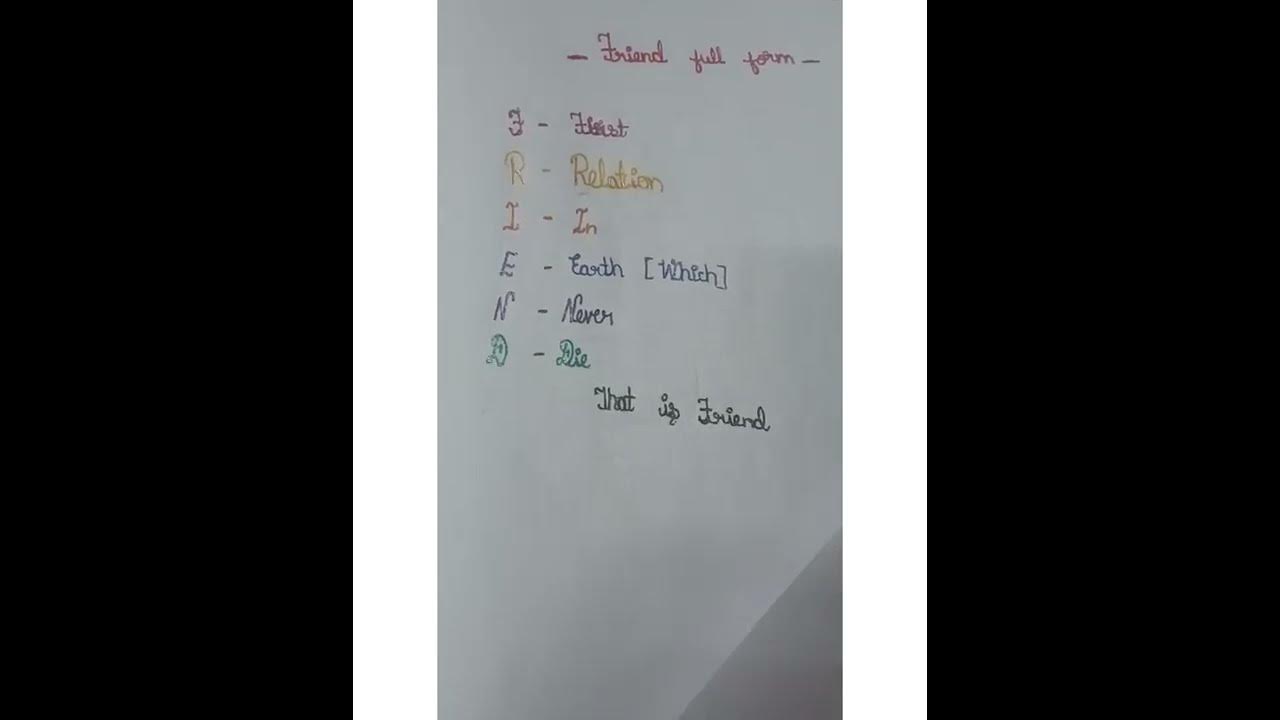 - Friend full form -
F - First
R - Relation
I - In
E - Earth [Which]
N - Never
D - Die
That is Friend